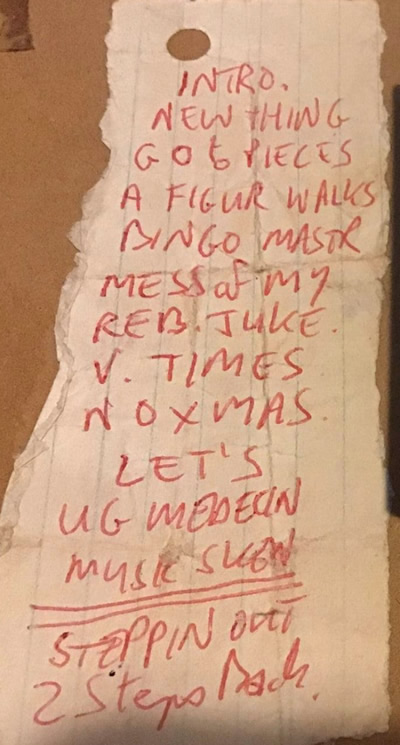 INTRO.
NEW THING
GO to PIECES
A FIGUR WALKS
BINGO MASTR
MESS of MY
REB. JUKE.
V. TIMES
NO XMAS.
LET'S
UG MEDECIN
MUSIC
STEPPIN OUT
2 Steps Back.